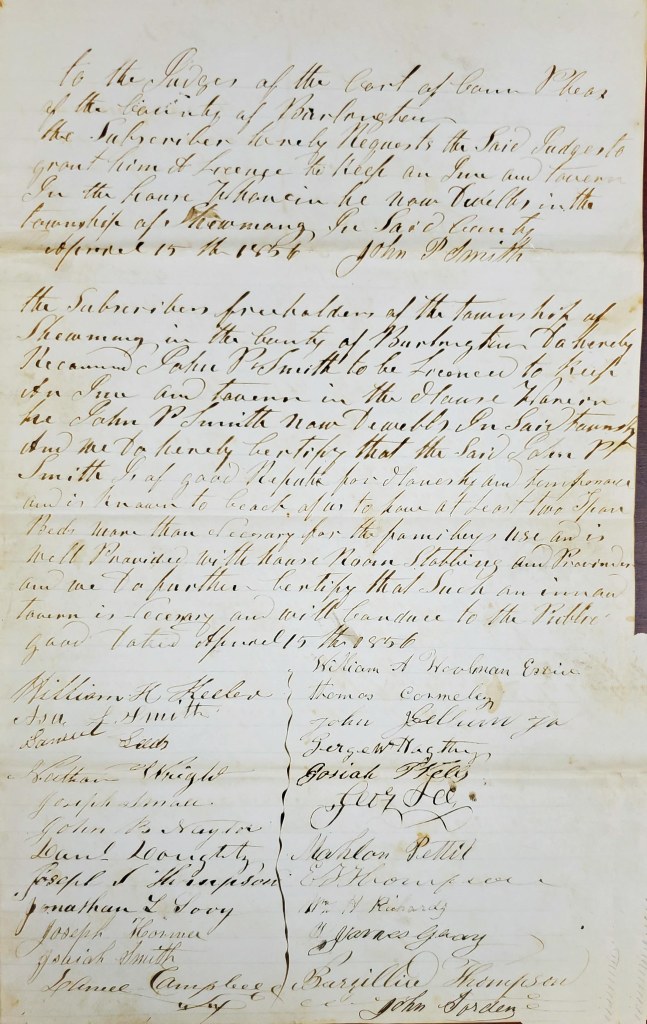 to the Judges of the Cort of Comn Pleas
of the County of Burlington
the Subscriber hereby Requests the Said Judges to
grant him A Licence to Keep an Inn and tavern
In the house Wharein he now Dwells in the
township of Shemong In Said County
Aprael 15 th 1856 John P Smith
the Subscribers freeholders of the township of
Shemong in the County of Burlington Do hereby
Recomend John P Smith to be Licenced to Keep
An Inn and tavern in the House Wharein
he John P Smith Now Dewells In Said township
And we Do hereby Certify that the Said John P
Smith Is of good Repute for Honesty and temperance
and is Known to Each of us to have at Least two Spare
Beds more than Necesary for the familys use and is
well Provided with house Room Stabling and Provinder
and we Do further Certify that Such an inn and
tavern is Necesary and will Conduce to the Public
good Dated Aprael 15 th 1856
William A Woolman Esqire
William H Keeler thomas Cormeley
Asa Smith John
Samuel George W
Nathan Wright Josiah
Joseph Inman Geo Lee
John B Naylor
Danl Doughty Mahlon Pettit
Joseph Thompson E Thompson
Jonathan L Wm H Richards
Joseph James Gray
Josiah Smith
Campbell Barzillia Thompson
John Jorden